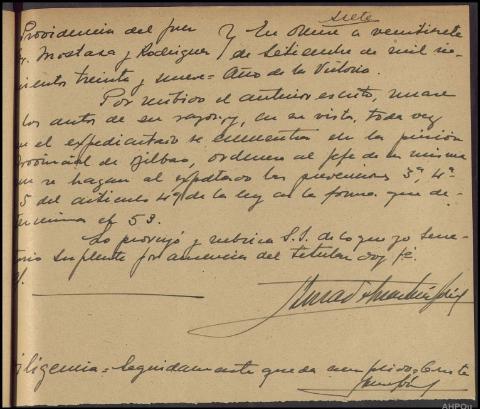 siete
Providencia del Juez
Sr. Mostaza y Rodriguez
En Orense a veintisiete
de Setiembre de mil no-
vecientos treinta y nueve = Año de la Victoria.
Por recibido el anterior escrito, unase
los autos de su razon y, en su vista, toda vez
el expedientado se encuentra en la prisión
Provincial de Bilbao, ordenese al Jefe de la misma
se hagan al expedtado las prevenciones 3ª, 4ª
5 del articulo 49 de la ley en la forma que de-
termina el 53.
Lo proveyó y rubrica S.S. de lo que yo Secre-
tario Suplente por ausencia del titular doy fe.
Diligencia = Seguidamente queda cumplido. Conste
AHPOu